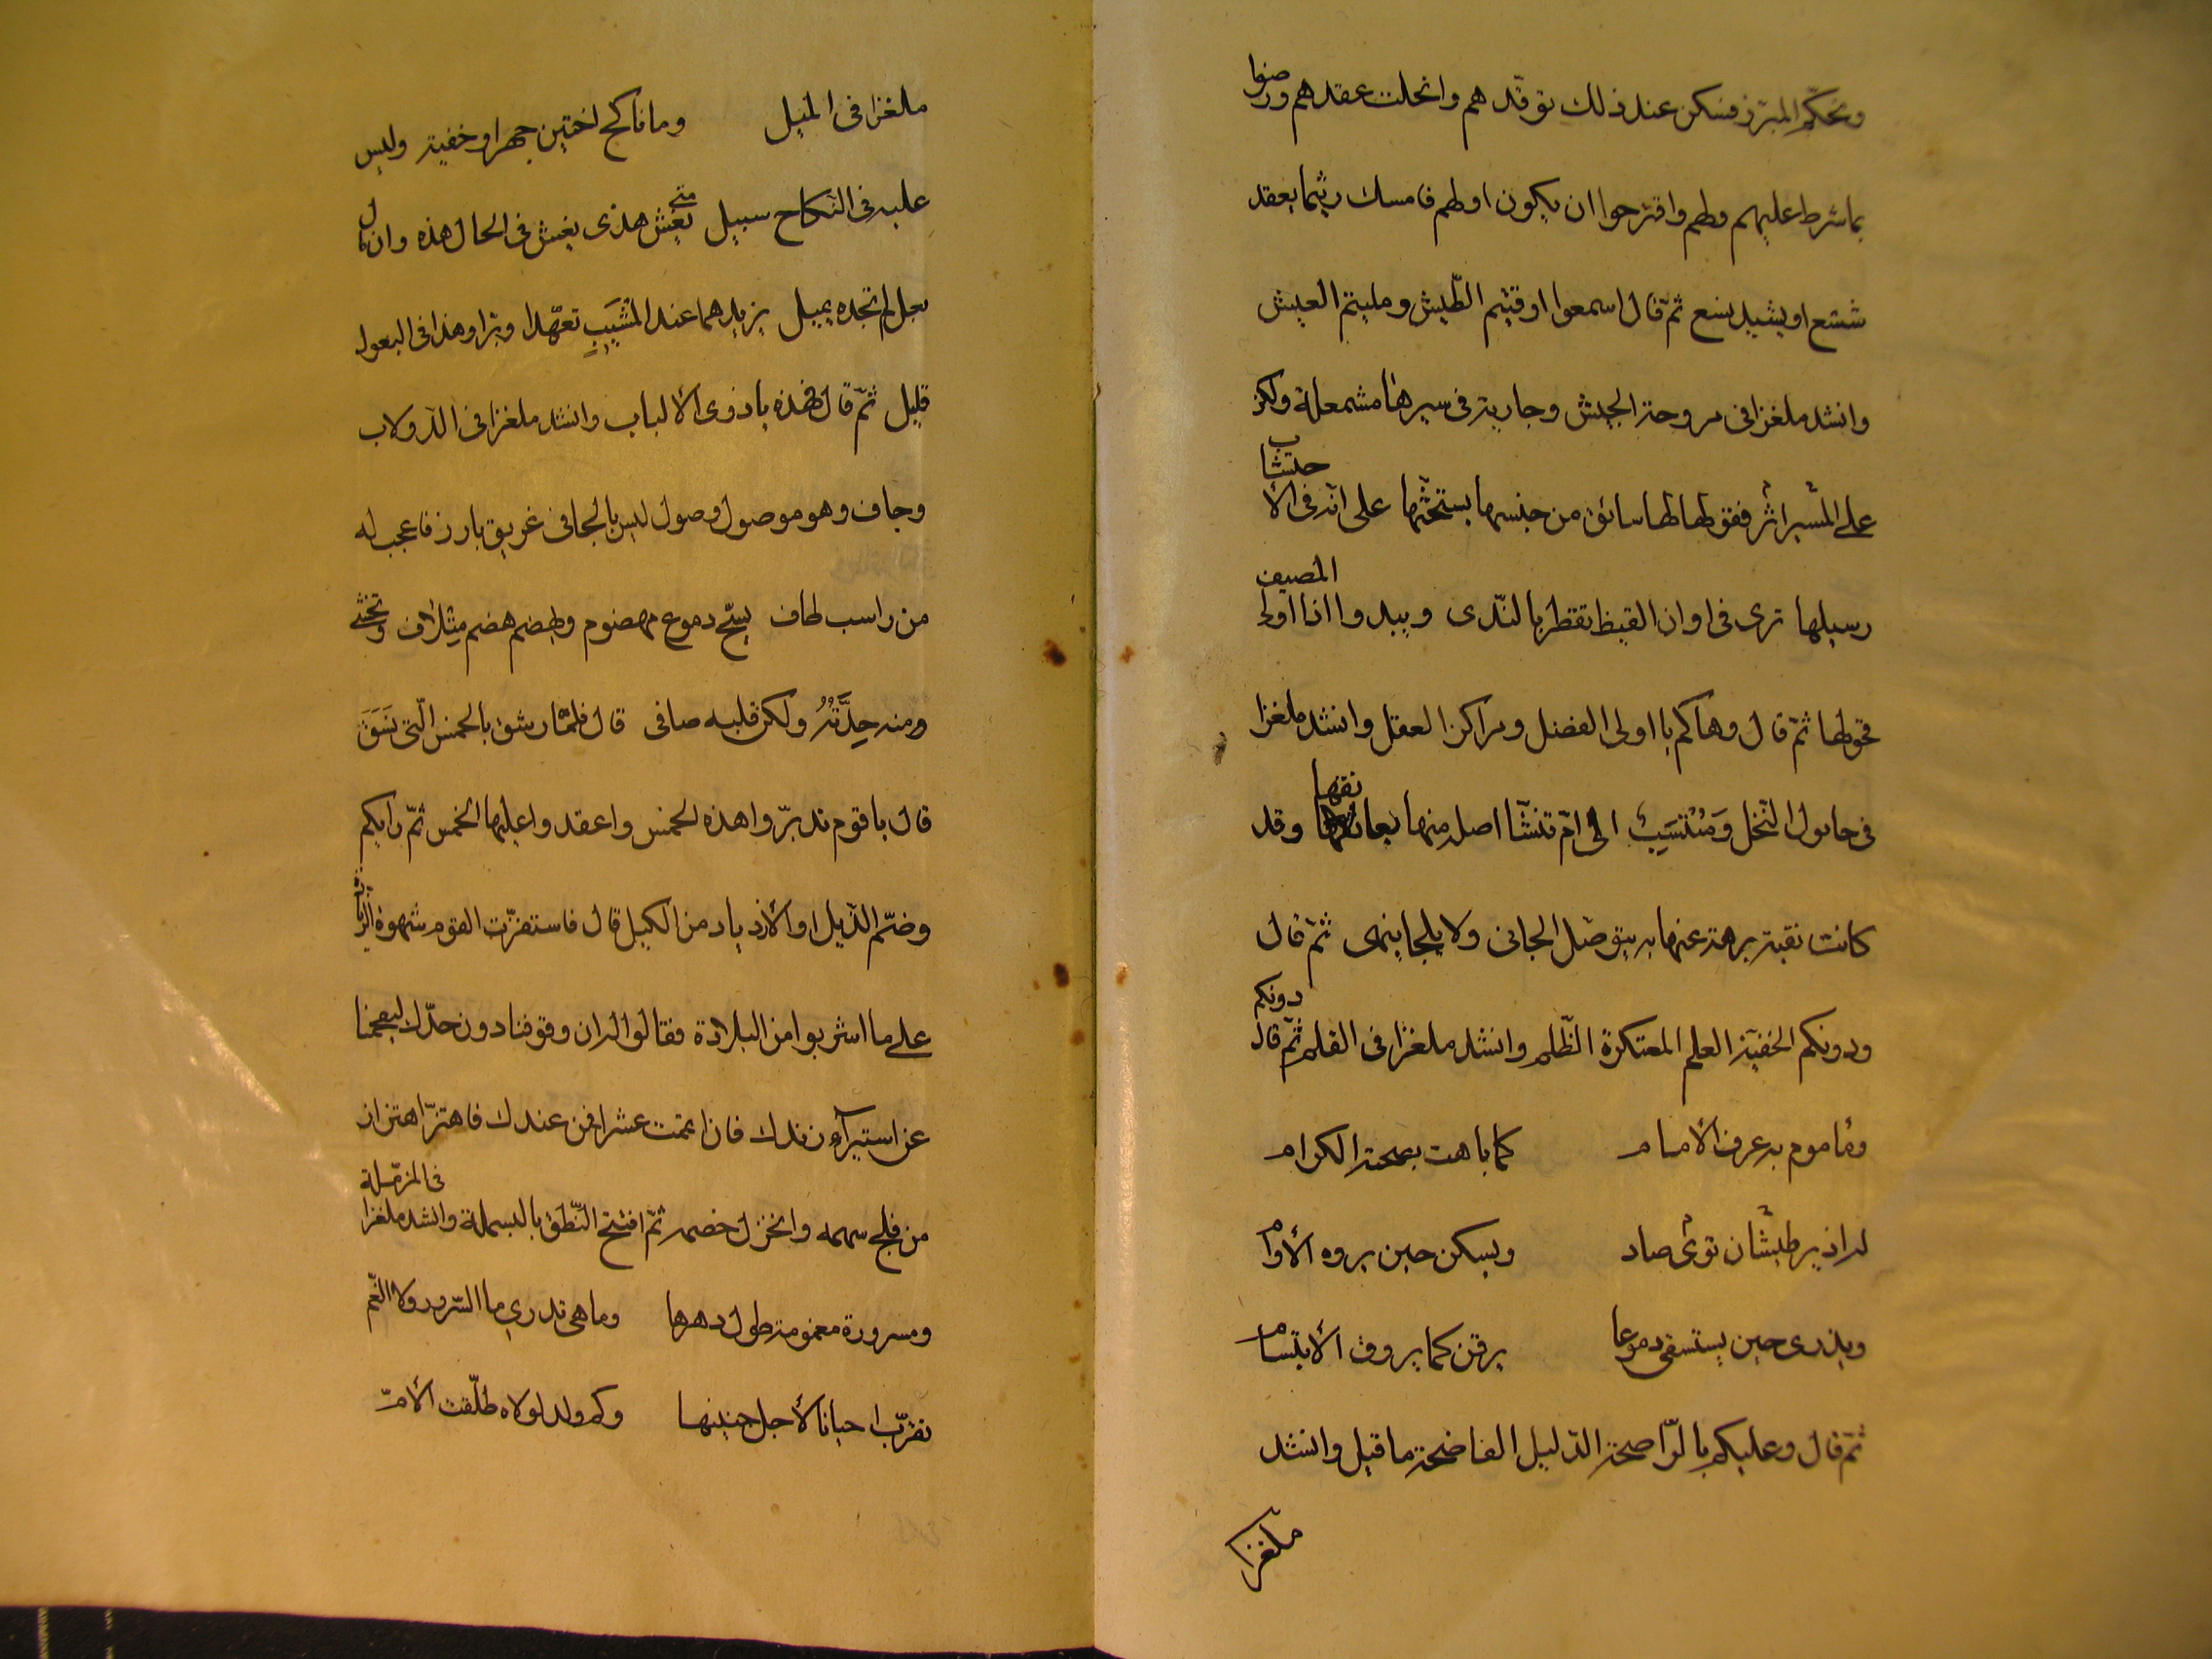 وتحكّم المبرّز فسكن عند ذلك توقّدهم وانحلت عقدهم ورضوا
بما شرط عليهم ولهم واقترحوا ان يكون اولهم فامسك ريثما يعقد
شسع او يشيد نسع ثمّ قال اسمعوا اوقيتم الطّيش ومليتم العيش
وانشد ملغزا فى مروحة الخيش وجارية فى سيرها مشمعلة ولكن
على اثر المسير قفولها لها سائق من جنسها يستحثّها على انّه فى الاحتثاب
رسيلها ترى فى اوان القيظ تقطر بالنّدى ويبدوا اذا اولى المصيف
قحولها ثمّ قال وهاكم يا اولى الفضل ومراكز العقل وانشد ملغزا
فى حابول النّخل وَمُنْتَسِب الى امّ تنشّا اصله منها يعانقها وقد
كانت نفته برهة عنها به يتوصّل الجانى ولا يلحا ينهى ثمّ قال
ودونكم الخفيّة العلم المعتكرة الظّلم وانشد ملغزا فى القلم ثمّ قال دونكم
ومأموم به عرف الامام كما باهت بصحته الكرام
له اذ يرطيشان توى صاد ويسكن حين يروه الاوام
ويذرى حين يستسقى دموعا يرقن كما يروق الابتسام
ثمّ قال وعليكم بالواضحة الدّليل الفاضحة ما قيل وانشد
ملغزا
ملغزا فى الميل وما ناكح اختين جهرا وخفية وليس
عليه فى النّكاح سبيل متى يغش هذى يغش فى الحال هذه وان مال
بعل لم تجده يميل يزيدهما عند المَشيبِ تعهّدا وبرّا وهذا فى البعول
قليل ثمّ قال فهذه يا ذوى الالباب وانشد ملغزا فى الدّولاب
وجاف وهو موصول وصول ليس بالجافى غريق بارز فاعجب له
من راسب طاف يسحّ دموع مهضوم ويهضم هضم متلاف وتخشى
ومنه حِدَّتُهُ ولكن قلبه صافى قال فلمّا رشق بالخمس الّتى نَسَقَ
قال يا قوم تدبّروا هذه الخمس واعقدوا عليها الخمس ثمّ رايكم
وضمّ الذّيل او الازدياد من الكيل قال فاستفزّت القوم شهوة الزيادة
على ما اشربوا من البلادة فقالوا له ان وقوفنا دون حدّك ليفحمنا
عن استيرآء زندك فان اتممت عشرا فمن عندك فاهتزّ اهتزاز
من فلج سهمه وانخزل خصمه ثمّ افتتح النّطق بالبسملة وانشد ملغزا فى المزمّلة
ومسرورة مغمومة طول دهرها وما هى تدرى ما السّرور ولا الغّم
تقرّب احيانا لاجل جنينها وكم ولد لولاه طلّقت الامّ